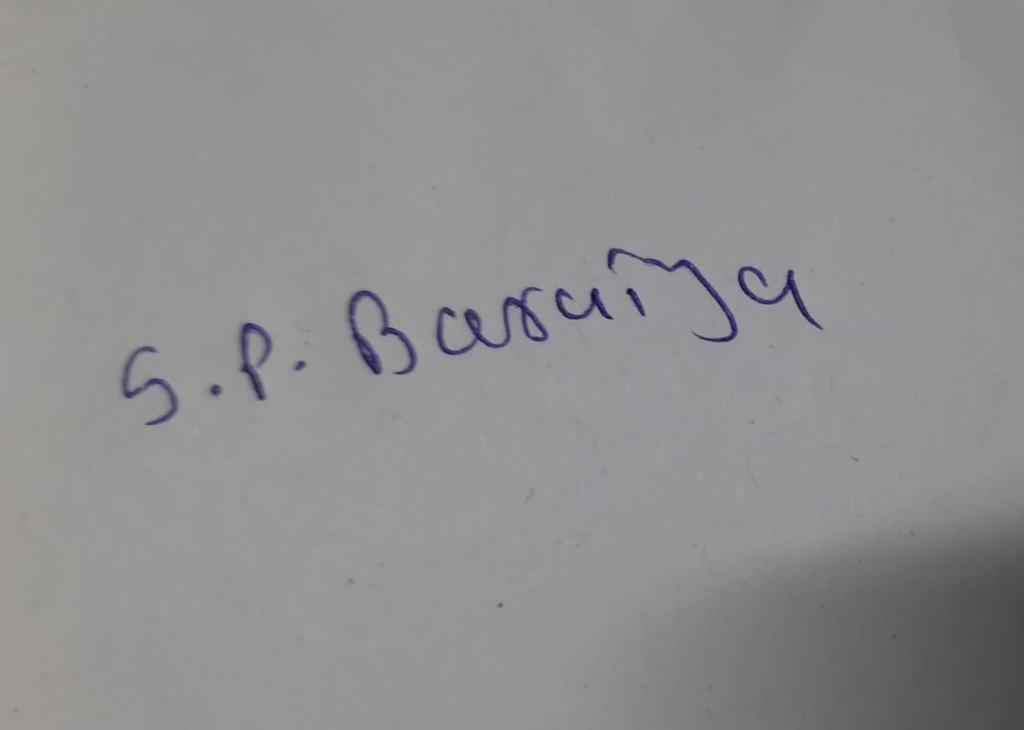 S.P. Baraiya